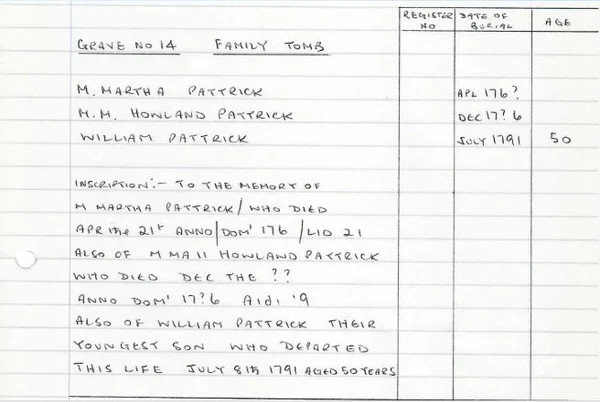 REGISTER NO
DATE OF BURIAL
AGE
GRAVE NO 14 FAMILY TOMB
M. MARTHA PATTRICK APL 176?
M.M. HOWLAND PATTRICK DEC 17?6
WILLIAM PATTRICK JULY 1791 50
INSCRIPTION:- TO THE MEMORY OF
M MARTHA PATTRICK/ WHO DIED
APR the 21st ANNO/DOM' 176 /LID 21
ALSO OF M MA II HOWLAND PATTRICK
WHO DIED DEC THE ??
ANNO DOM' 17?6 AIdI '9
ALSO OF WILLIAM PATTRICK THEIR
YOUNGEST SON WHO DEPARTED
THIS LIFE JULY 8th 1791 AGED 50 YEARS